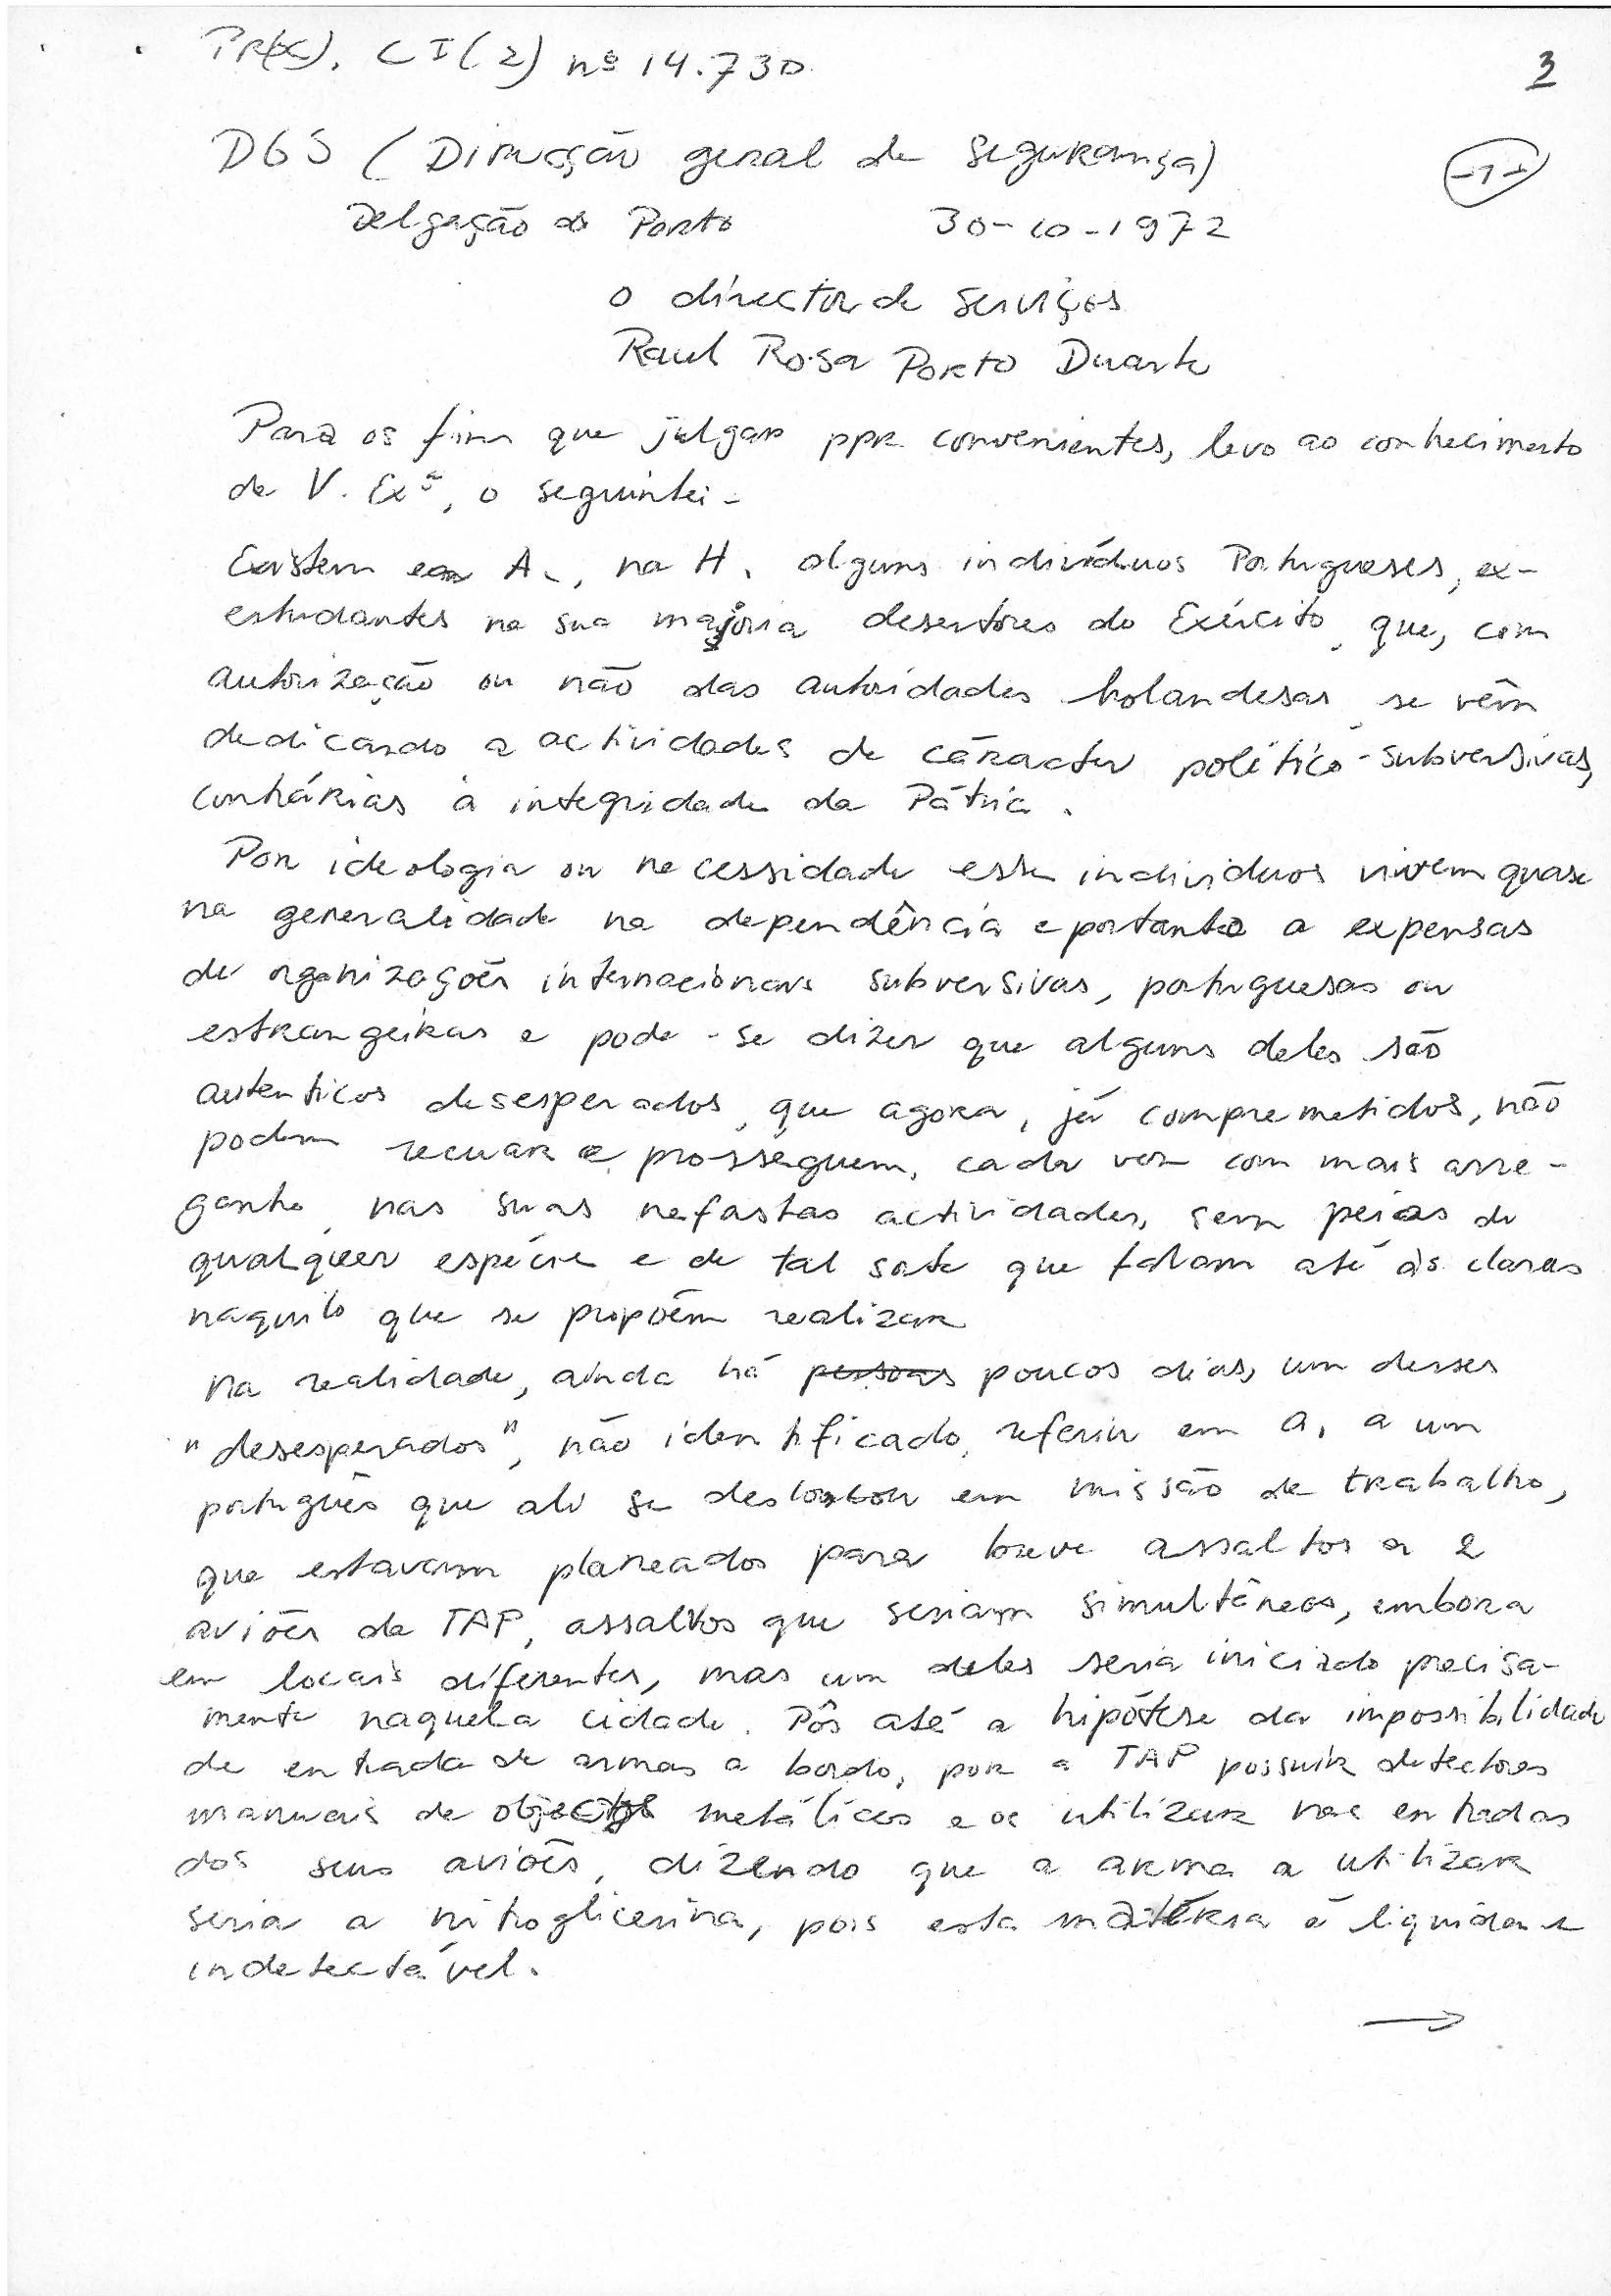 PR(x). CI(2) nº 14.730
3
DGS (Direcção geral de Segurança)
-1-
Delgação do Porto 30-10-1972
O director de serviços
Raul Rosa Porto Duarte
Para os fins que julgar ppr convenientes, levo ao conhecimento
de V. Exª, o seguinte: -
Existem em A., na H. alguns indivíduos Portugueses, ex-
estudantes na sua majoria desertores do Exército, que, com
autorização ou não das autoridades holandesas, se vêm
dedicando a actividades de cáracter político-subversivas,
contrárias à integridade da Pátria.
Por ideologia ou necessidade esses individuos vivem quase
na generalidade na dependência e portanto a expensas
de organizações internacionais subversivas, portuguesas ou
estrangeiras e pode-se dizer que alguns deles são
autenticos desesperados, que agora, já comprometidos, não
podem recuar e prosseguem, cada vez com mais arre-
ganho, nas suas nefastas actividades, sem peias de
qualquer espécie e de tal sorte que falam até às claras
naquilo que se propõem realizar
Na realidade, ainda há pessoas poucos dias, um desses
"desesperados", não identificado, referiu em A, a um
português que ali se deslocou em missão de trabalho,
que estavam planeados para breve assaltos a 2
aviões da TAP, assaltos que seriam simultâneos, embora
em locais diferentes, mas um deles seria iniciado precisa-
mente naquela cidade. Pôs até a hipótese da impossibilidade
de entrada de armas a bordo, por a TAP possuir detectores
manuais de objectos metálicos e os utilizar nas entradas
dos seus aviões, dizendo que a arma a utilizar
seria a nitroglicerina, pois esta matéria é liquida e
indetectável.
→